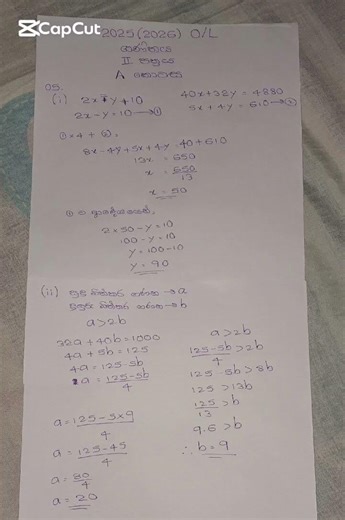 CapCut
2025(2026) O/L
ගණිතය
II පත්‍රය
A කොටස
05.
(i) 2x = y + 10
2x - y = 10 → ①
40x + 32y = 4880
5x + 4y = 610 → ②
① × 4 + ②,
8x - 4y + 5x + 4y = 40 + 610
13x = 650
x = 650/13
x = 50
① ට ආදේශයෙන්,
2 × 50 - y = 10
100 - y = 10
y = 100 - 10
y = 90
(ii)
→ a
→ b
a > 2b
32a + 40b = 1000
4a + 5b = 125
4a = 125 - 5b
a = 125 - 5b / 4
a = 125 - 5 × 9 / 4
a = 125 - 45 / 4
a = 80/4
a = 20
a > 2b
125 - 5b / 4 > 2b
125 - 5b > 8b
125 > 13b
125/13 > b
9.6 > b
∴ b = 9